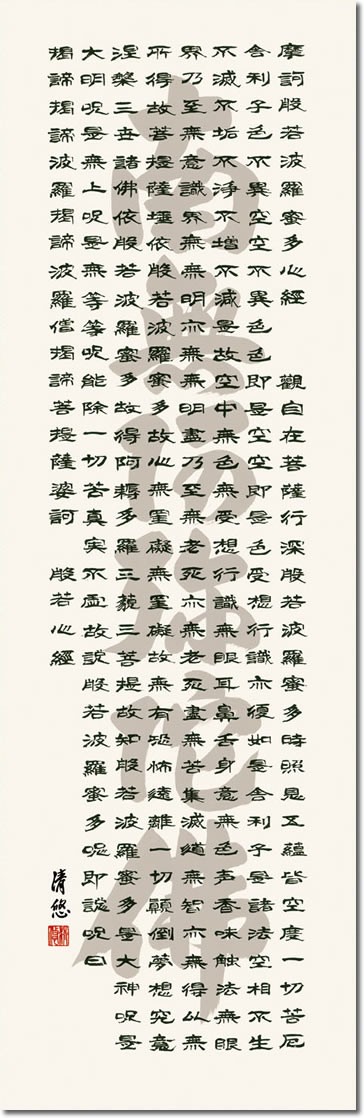 摩訶般若波羅蜜多心經　觀自在菩薩行深般若波羅蜜多時照見五蘊皆空度一切苦厄
舍利子色不異空空不異色色即是空空即是色受想行識亦復如是舍利子是諸法空相不生
不滅不垢不淨不增不減是故空中無色無受想行識無眼耳鼻舌身意無色声香味触法無眼
界乃至無意識界無無明亦無無明盡乃至無老死亦無老死盡無苦集滅道無智亦無得以無
所得故菩提薩埵依般若波羅蜜多故心無罣礙無罣礙故無有恐怖遠離一切顛倒夢想究竟
涅槃三世諸佛依般若波羅蜜多故得阿耨多羅三藐三菩提故知般若波羅蜜多是大神呪是
大明呪是無上呪是無等等呪能除一切苦真実不虚故説般若波羅蜜多呪即説呪曰
掲諦掲諦波羅掲諦波羅僧掲諦菩提薩婆訶　般若心經
清悠
南無阿弥陀佛